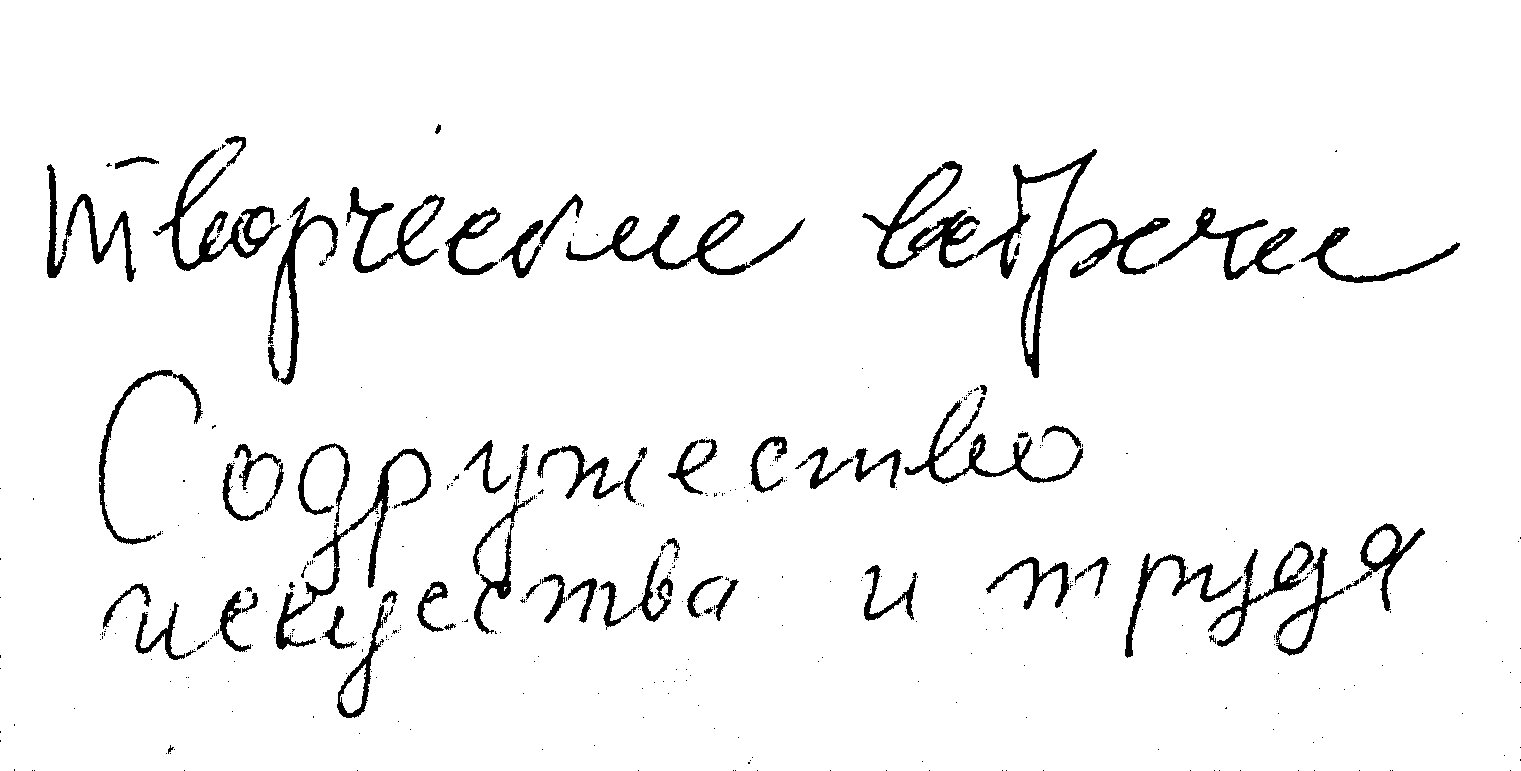 Творческие встречи
Содружество
искусства и труда